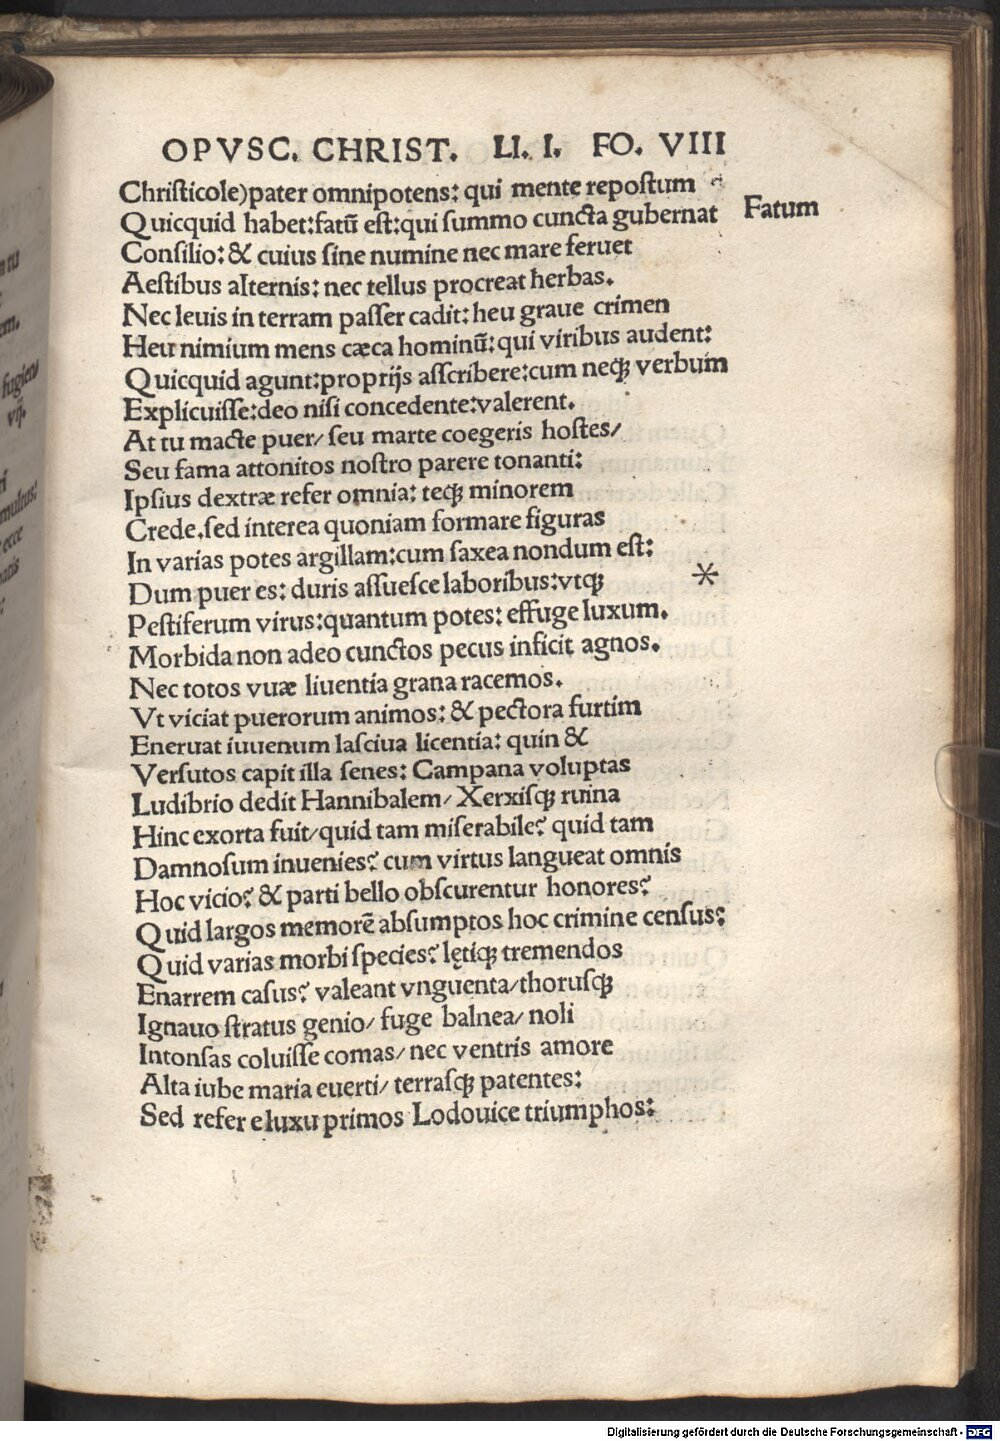 OPVSC. CHRIST. LI. I. FO. VIII
Christicole)pater omnipotens: qui mente repostum
Quicquid habet:fatū est:qui summo cuncta gubernat
Fatum
Consilio: & cuius sine numine nec mare feruet
Aestibus alternis: nec tellus procreat herbas.
Nec leuis in terram passer cadit: heu graue crimen
Heu nimium mens cæca hominū: qui viribus audent:
Quicquid agunt:proprijs asscribere:cum neqꝫ verbum
Explicuisse:deo nisi concedente:valerent.
At tu macte puer/ seu marte coegeris hostes/
Seu fama attonitos nostro parere tonanti:
Ipsius dextræ refer omnia: teqꝫ minorem
Crede.sed interea quoniam formare figuras
In varias potes argillam:cum saxea nondum est:
Dum puer es: duris assuesce laboribus:vtqꝫ
*
Pestiferum virus:quantum potes: effuge luxum.
Morbida non adeo cunctos pecus inficit agnos.
Nec totos vuæ liuentia grana racemos.
Vt viciat puerorum animos: & pectora furtim
Eneruat iuuenum lasciua licentia: quin &
Versutos capit illa senes: Campana voluptas
Ludibrio dedit Hannibalem/ Xerxisqꝫ ruina
Hinc exorta fuit/quid tam miserabile? quid tam
Damnosum inuenies? cum virtus langueat omnis
Hoc vicio? & parti bello obscurentur honores?
Quid largos memorē absumptos hoc crimine census?
Quid varias morbi species? lętiqꝫ tremendos
Enarrem casus? valeant vnguenta/thorusqꝫ
Ignauo stratus genio/ fuge balnea/ noli
Intonsas coluisse comas/ nec ventris amore
Alta iube maria euerti/ terrasqꝫ patentes:
Sed refer e luxu primos Lodouice triumphos:
Digitalisierung gefördert durch die Deutsche Forschungsgemeinschaft - DFG